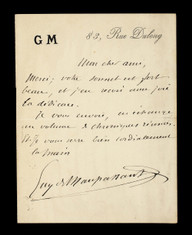 G M 83, Rue Dulong
Mon cher ami,
Merci; votre sonnet est fort
beau, et j'en reçois avec joie
la dédicace.
Je vous envoie, en échange
un volume de chroniques réunies.
Et je vous serre bien cordialement
la main
Guy de Maupassant